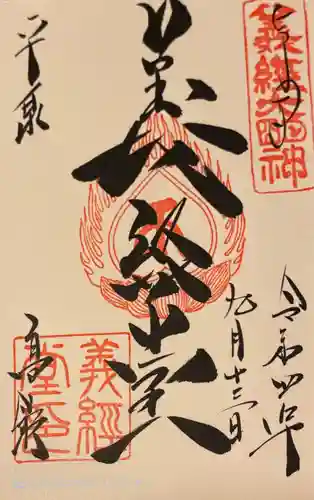 奉拝
令和四年
九月十三日
義経堂
平泉
高館
義経
堂印